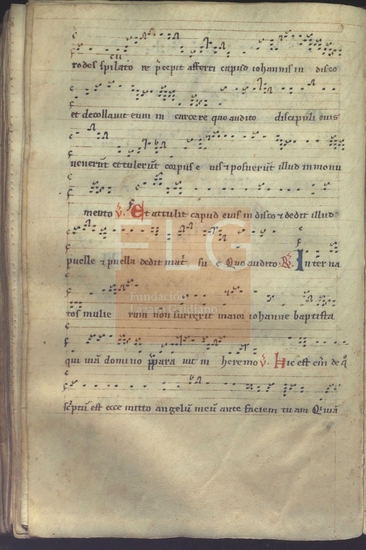 rodes spiculatore precepit afferri capud iohannis in disco
et decollavit eum in carcere quo audito discipuli eius
venerunt et tulerunt corpus eius et posuerunt illud in monu
mento V. Et attulit capud eius in disco et dedit illud
puelle et puella dedit matri sue Quo audito. R. Inter na
tos mulierum non surrexit maior iohanne baptista
qui viam domino preparavit in heremo V. Hic est enim de quo
scriptum est ecce mitto angelum meum ante faciem tuam Qui viam
FLG
Fundación